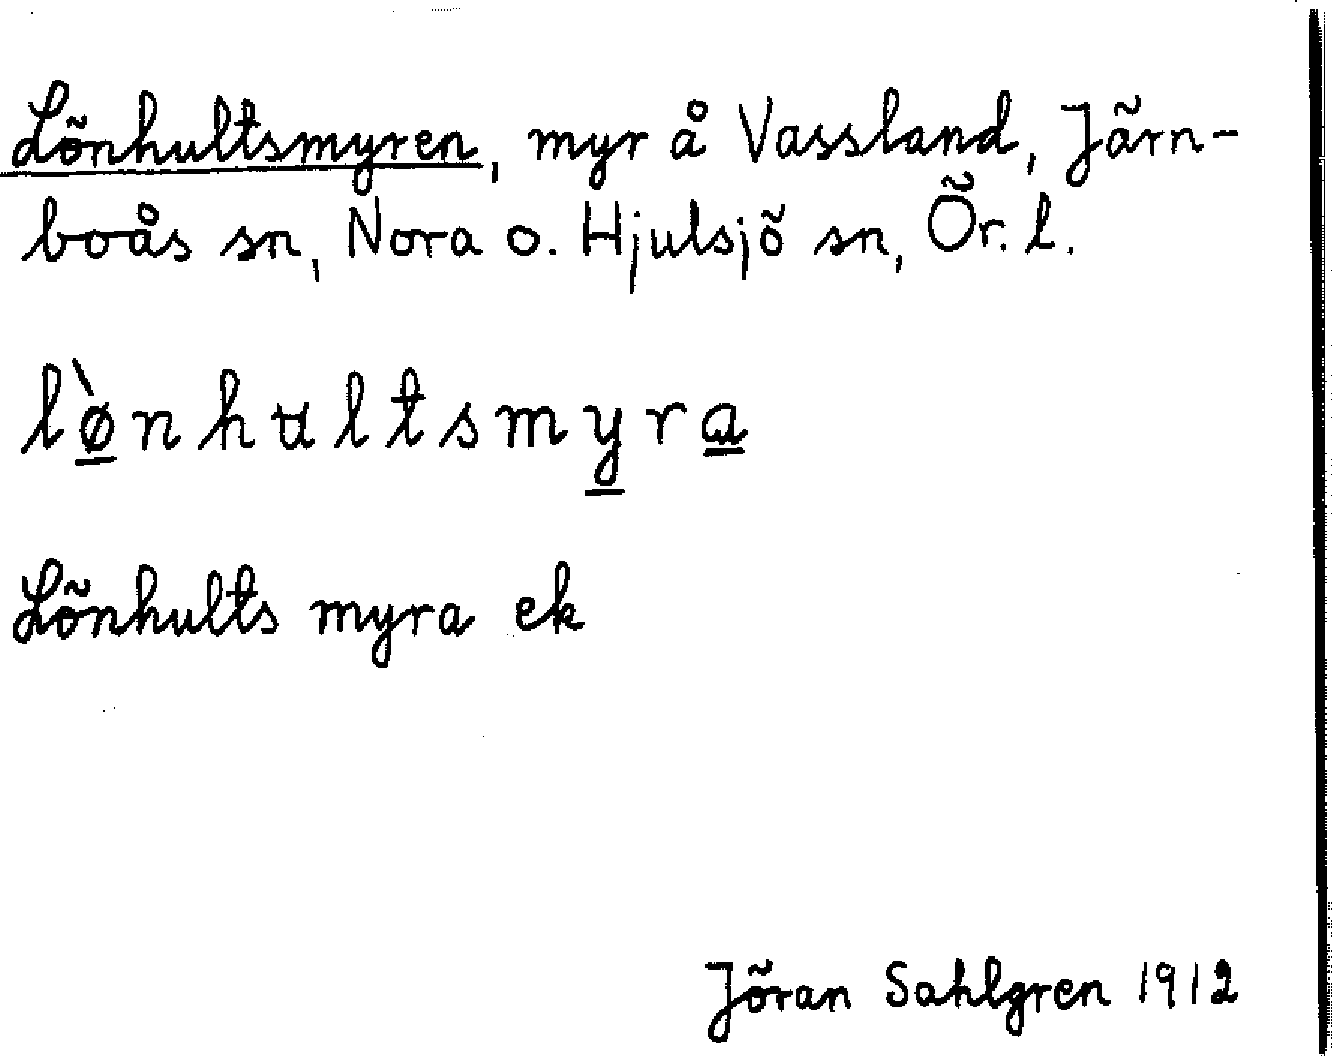 Lönhultsmyren, myr å Vassland, Järn-
boås sn, Nora o. Hjulsjö sn, Ör. l.
lø̀nhultsmyra
Lönhults myra ek
Jöran Sahlgren 1912